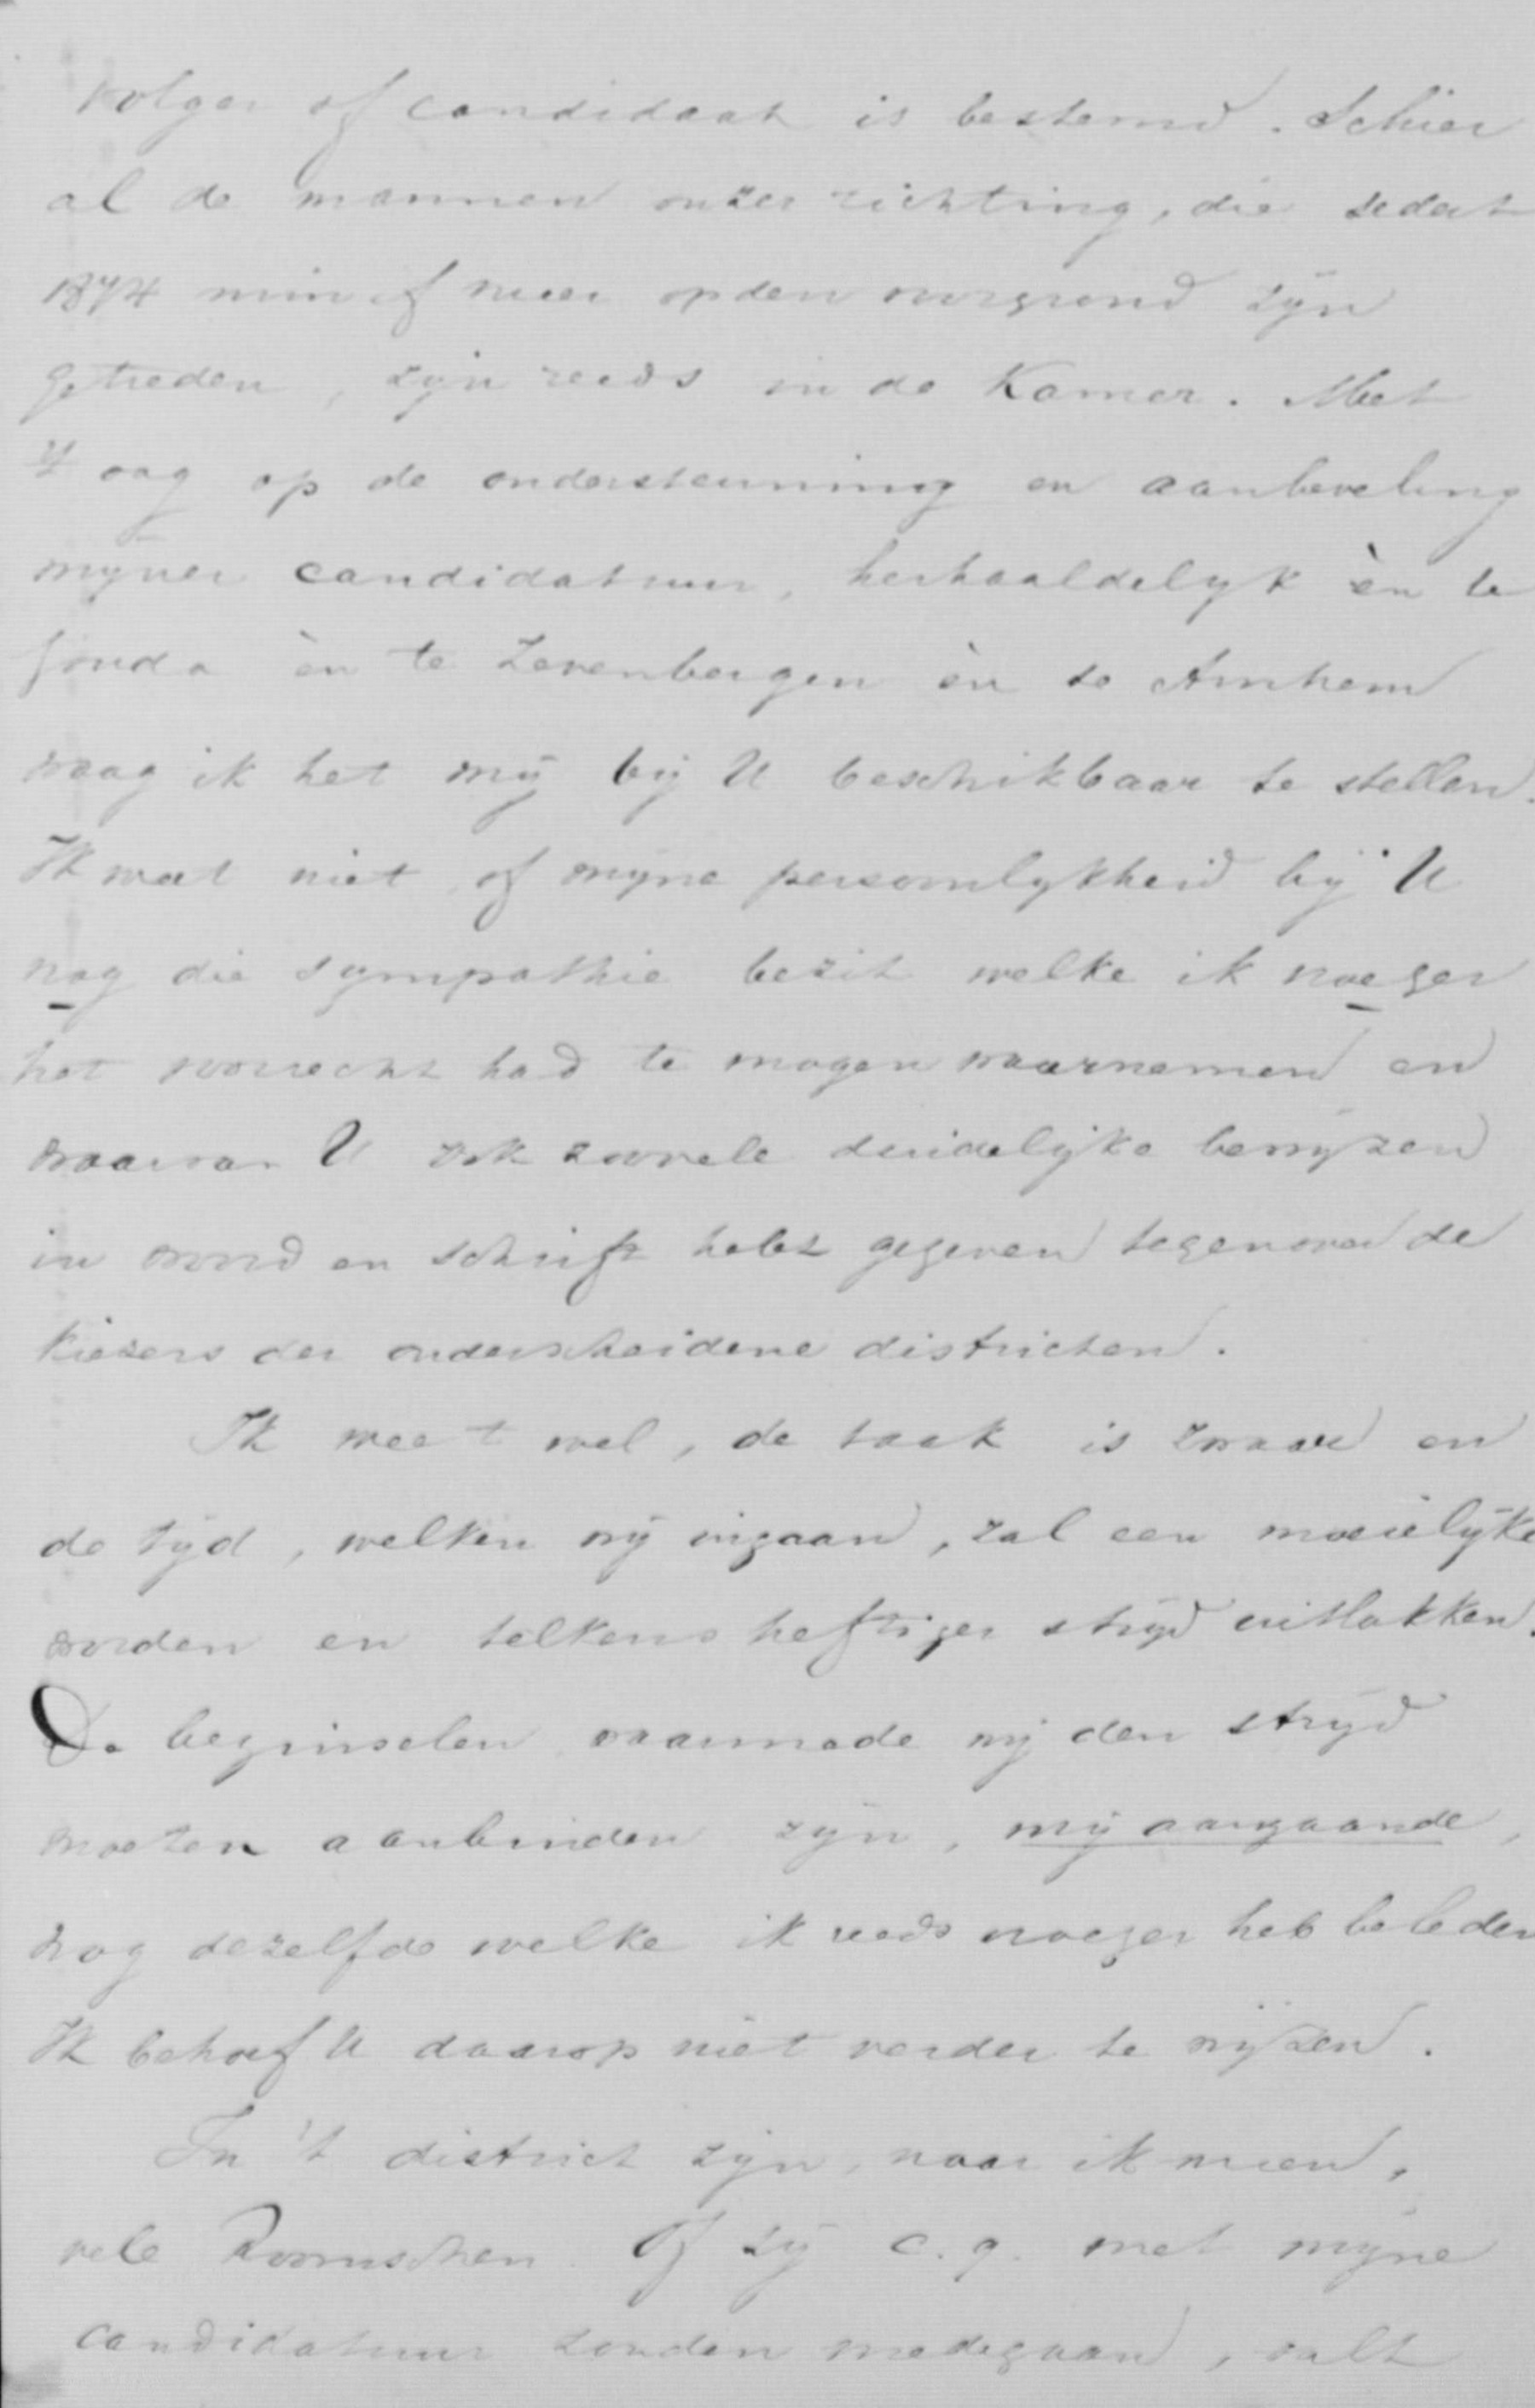 volger of candidaat is bestemd. Schier
al de mannen onzer richting, die sedert
1874 min of meer op den voorgrond zijn
getreden, zijn reeds in de Kamer. Met
't oog op de ondersteuning en aanbeveling
mijner candidatuur, herhaaldelijk èn te
Gouda èn te Zevenbergen èn te Arnhem
waag ik het mij bij U beschikbaar te stellen.
Ik weet niet of mijne persoonlijkheid bij U
nog die sympathie bezit welke ik vroeger
het voorrecht had te mogen waarnemen en
waarvan U ook zoovele duidelijke bewijzen
in woord en schrift hebt gegeven tegenover de
kiezers der onderscheidene districten.
Ik weet wel, de taak is zwaar en
de tijd, welken wij ingaan, zal een moeielijke
worden en telkens heftiger strijd uitlokken.
De beginselen waarmede wij den strijd
moeten aanbinden zijn, mij aangaande,
nog dezelfde welke ik reeds vroeger heb beleden
Ik behoef U daarop niet verder te wijzen.
In 't district zijn, naar ik meen,
vele Roomschen. Of zij c.q. met mijne
candidatuur zouden medegaan, valt